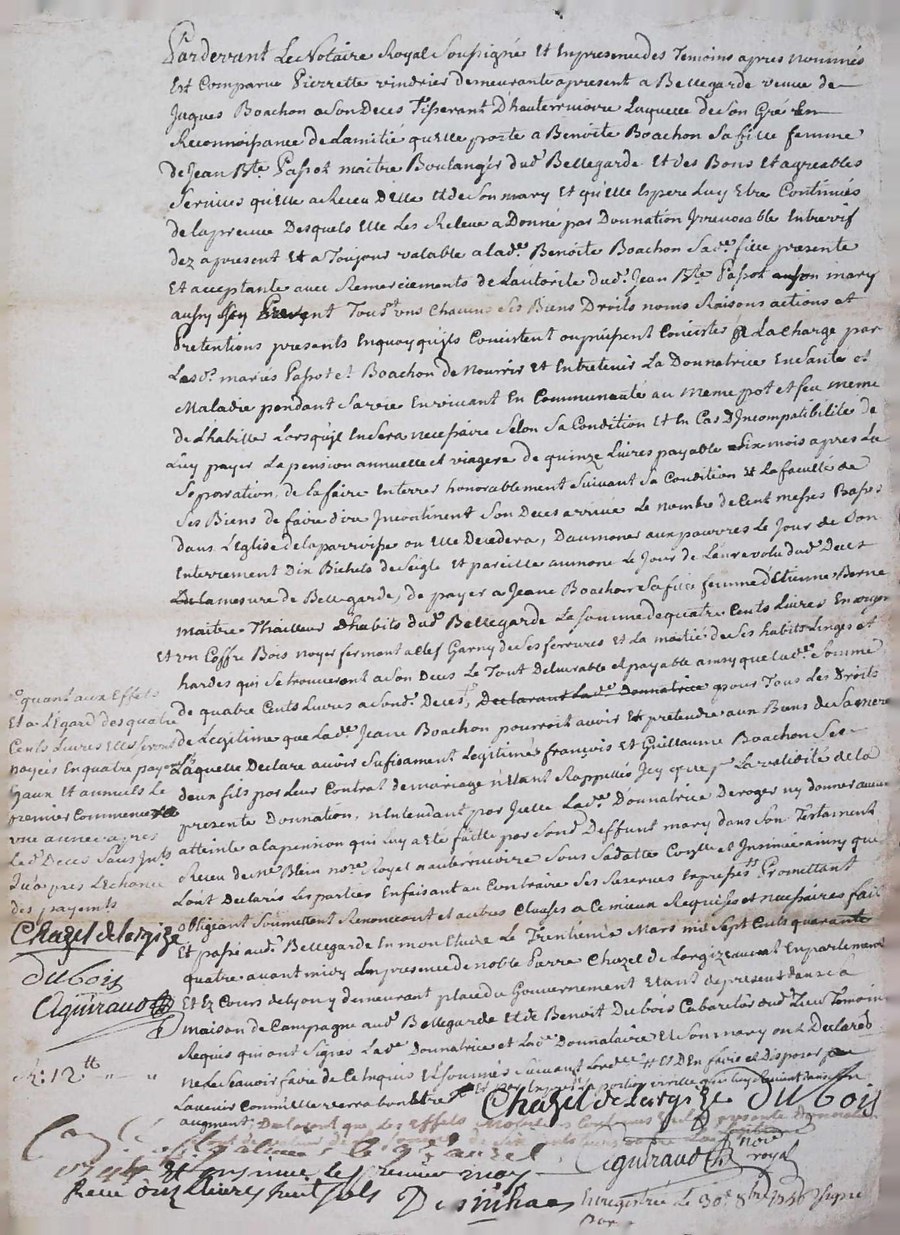 Pardevant Le Notaire Royal Soussigné Et En presence des Temoins apres nommés
Est Comparue Pierrette vindrier demeurante apresent a Bellegarde veuve de
Jaques Boachon a Son Deces Tisserant D'hauterivoire Laquelle de Son Gré En
Reconnoissance De Lamitié quelle porte a Benoite Boachon Sa fille femme
de Jean Bte Passot maitre Boulanger dud. Bellegarde Et des Bons Et agreables
Services quelle a Receu Delle Et de Son mary Et quelle Espere Luy Etre Continués
de la preuve Desquels Elle Les Releve a Donné par Donnation Irrevocable Entrevif
dez apresent Et a Toujour valable a lad. Benoite Boachon Sad. fille presente
Et acceptante avec Remerciements de Lautorité dud. Jean Bte Passot son mary
aussy present Tous Et vns Chacuns Ses Biens Droits noms Raisons actions et
Pretentions presents En quoy quils Concistent ou puissent Concister a La Charge par
Lesd. mariés Passot et Boachon de Nourrir Et Entretenir La Donnatrice En Santé et
Maladie pendant Sa vie En vivant En Communauté au meme pot et feu meme
de L'habiller Lorsquil En Sera necessaire Selon Sa Condition Et En Cas D'Incompatibilité de
Luy payer La pension annuelle et viagere de quinze Livres payable Six mois apres La
Separation, de la faire Enterrer honorablement Suivant Sa Condition Et La faculté de
Ses Biens de faire dire Incontinent Son Deces arrivé Le nombre de Cent messes Basses
dans L'Eglise de la parroisse ou Elle Decedera, Daumoner aux pauvres Le Jour de Son
Enterrement Dix Bichets de Seigle Et pareille aumone Le Jour de Lan revolu dud. Deces
De la mesure de Bellegarde, de payer a Jeane Boachon Sa fille femme d'Etienne Berne
maitre Thailleur d'habits dud. Bellegarde La Somme de quatre Cents Livres En argen
Et vn Coffre Bois noyer fermant a clef Garny de Ses ferrures Et La moitié de Ses habits Linges et
hardes qui Se trouveront a Son Deces Le Tout Delivrable et payable ainsy que lad. Somme
de quatre Cents Livres a Sond. Deces, Declarant Lad. Donnatrice pour Tous Les Droits
de Legitime que Lad. Jeane Boachon pourroit avoir Et pretendre aux Biens de Sa mere
Laquelle Declare avoir Sufisament Legitimé françois Et Guillaume Boachon Ses
deux fils par Leur Contrat de mariage n'Etant Rappellés Icy que pr La validité de la
presente Donnation, n'Entendant par Icelle Lad. Donnatrice Deroger ny donner aucune
atteinte a La pension qui Luy a Eté faitte par Sond. Deffunt mary dans Son Testament
Receu de Me Blein nore Royal a hauterivoire Sous Sa datte Conllé et Insinué ainsy que
L'ont Declaré Les parties En faisant au Contraire Ses Reserves Expresses Promettant
obligeant Soumettant Renonceant et autres Clauses a Ce mieux Requises et necessaires fait
Et passé aud. Bellegarde En mon Etude Le Trentieme Mars mil Sept Cents quarante
quatre avant midy En presence de noble Pierre Chazel de Lorgize avocat En parlement
Et Ez Cours de Lyon y demeurant place du Gouvernement Etant de present dans sa
maison de Campagne aud. Bellegarde et de Benoit Dubois Cabaretier dud. Lieu Temoins
Requis qui ont Signés Lad. Donnatrice et Lad. Donnataire Et Son mary ont Declarés
ne Scavoir faire de Ce Enquis Et Sommés Suivant Lordce Et D'En faire et Disposer pr
Lavenir Comme Elle verra bon Etre
augment. Declarant que Les Effets
Chazel de lorgize Dubois
quant aux Effets
Et a L'Egard des quatre
Cents Livres Elles Seront
payées En quatre payements
Egaux Et annuels Le
premier Commencera
vne année apres
Led. Deces Sans Inths
Qu'apres L'Echance
des payemts
Chazel de lorgize
Dubois
Aguiraud
R. 12 tt " "
Aguiraud nore royal
1744 Et insinué le premier may
Receu onze livres huit sols
Enregistré le 30e